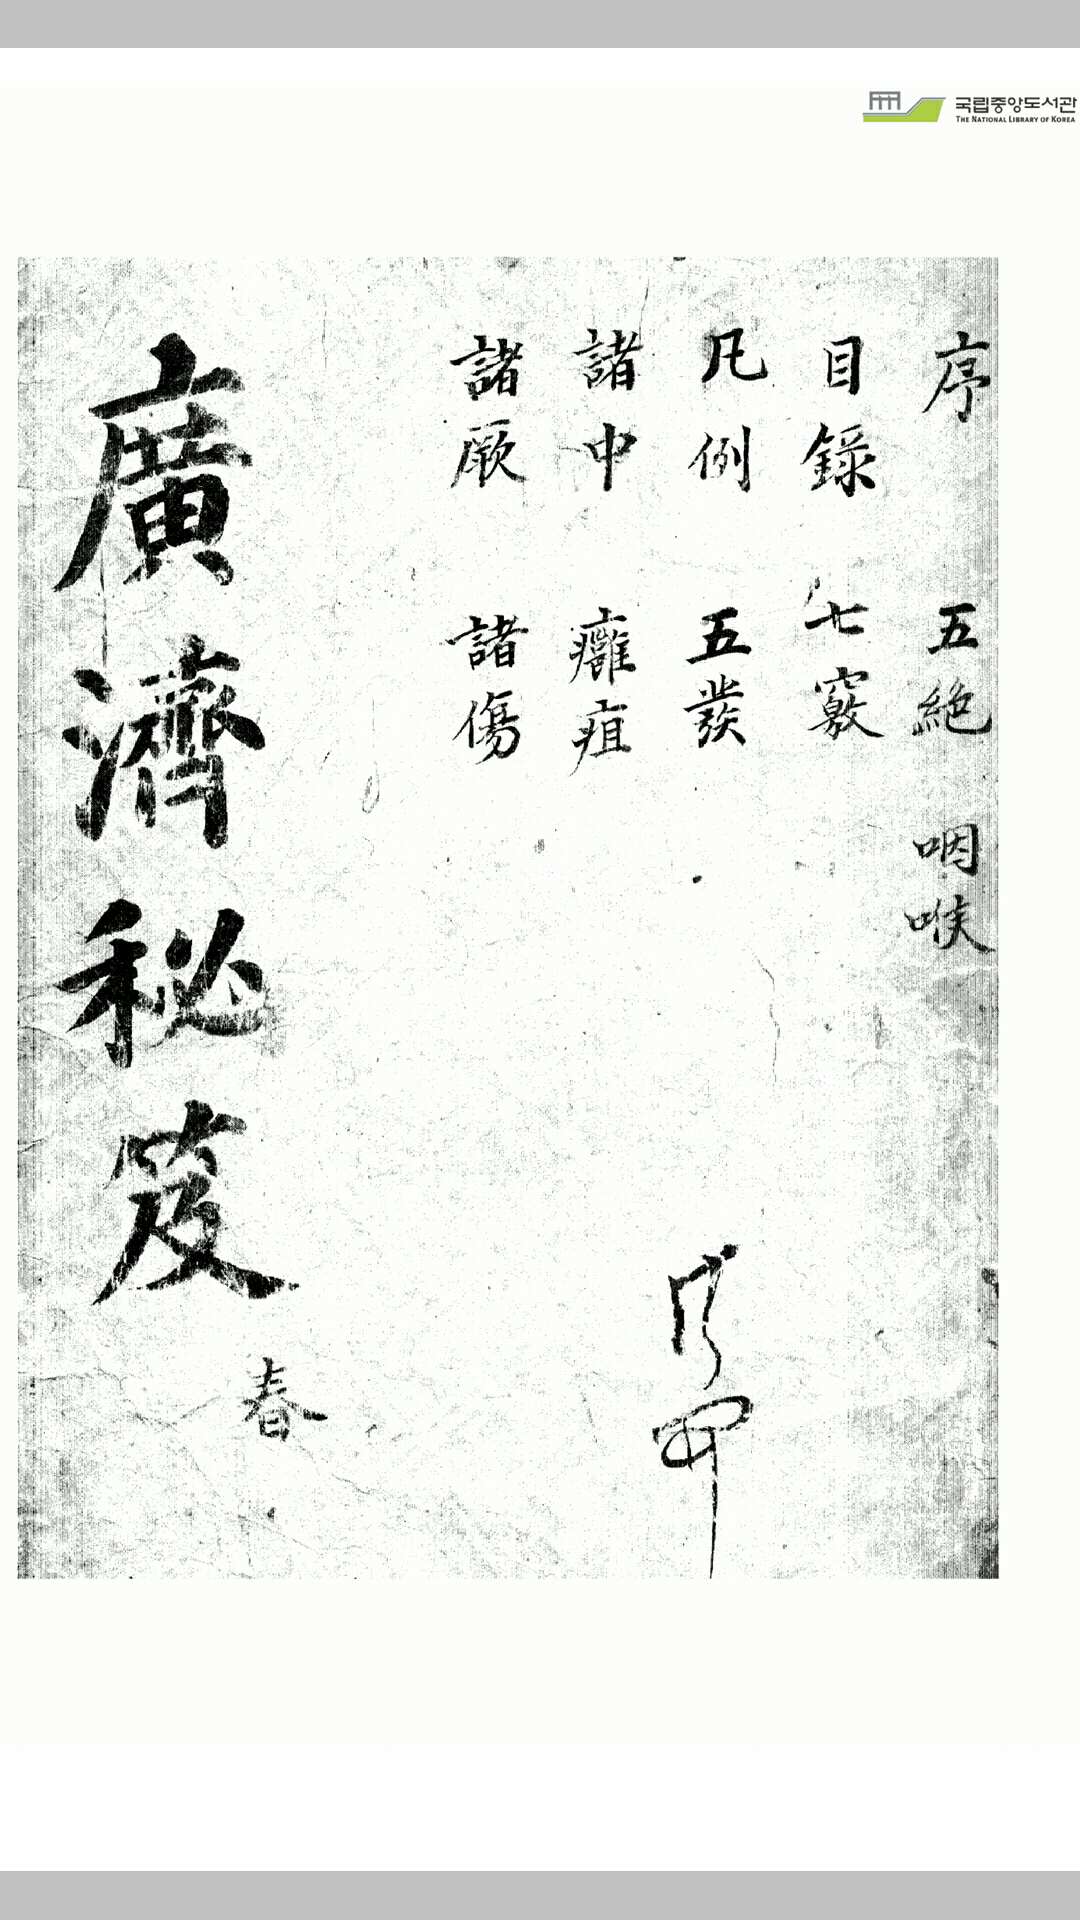 국립중앙도서관
THE NATIONAL LIBRARY OF KOREA
序 五絶 咽喉
目錄 七竅
凡例 五發
諸中 癰疽
諸厥 諸傷
廣濟秘笈
春